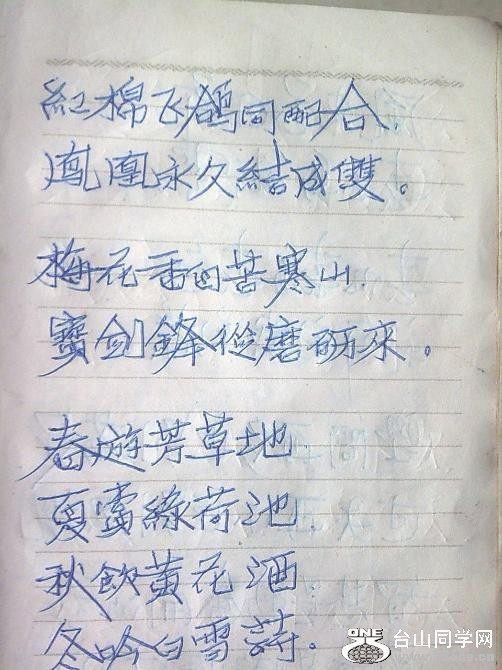 紅棉飞鴿同配合.
鳳凰永久結成雙。
梅花香自苦寒山.
寶劍鋒從磨砺來。
春遊芳草地.
夏賞綠荷池.
秋飲黃花酒.
冬吟白雪詩。
ONE
台山同学网